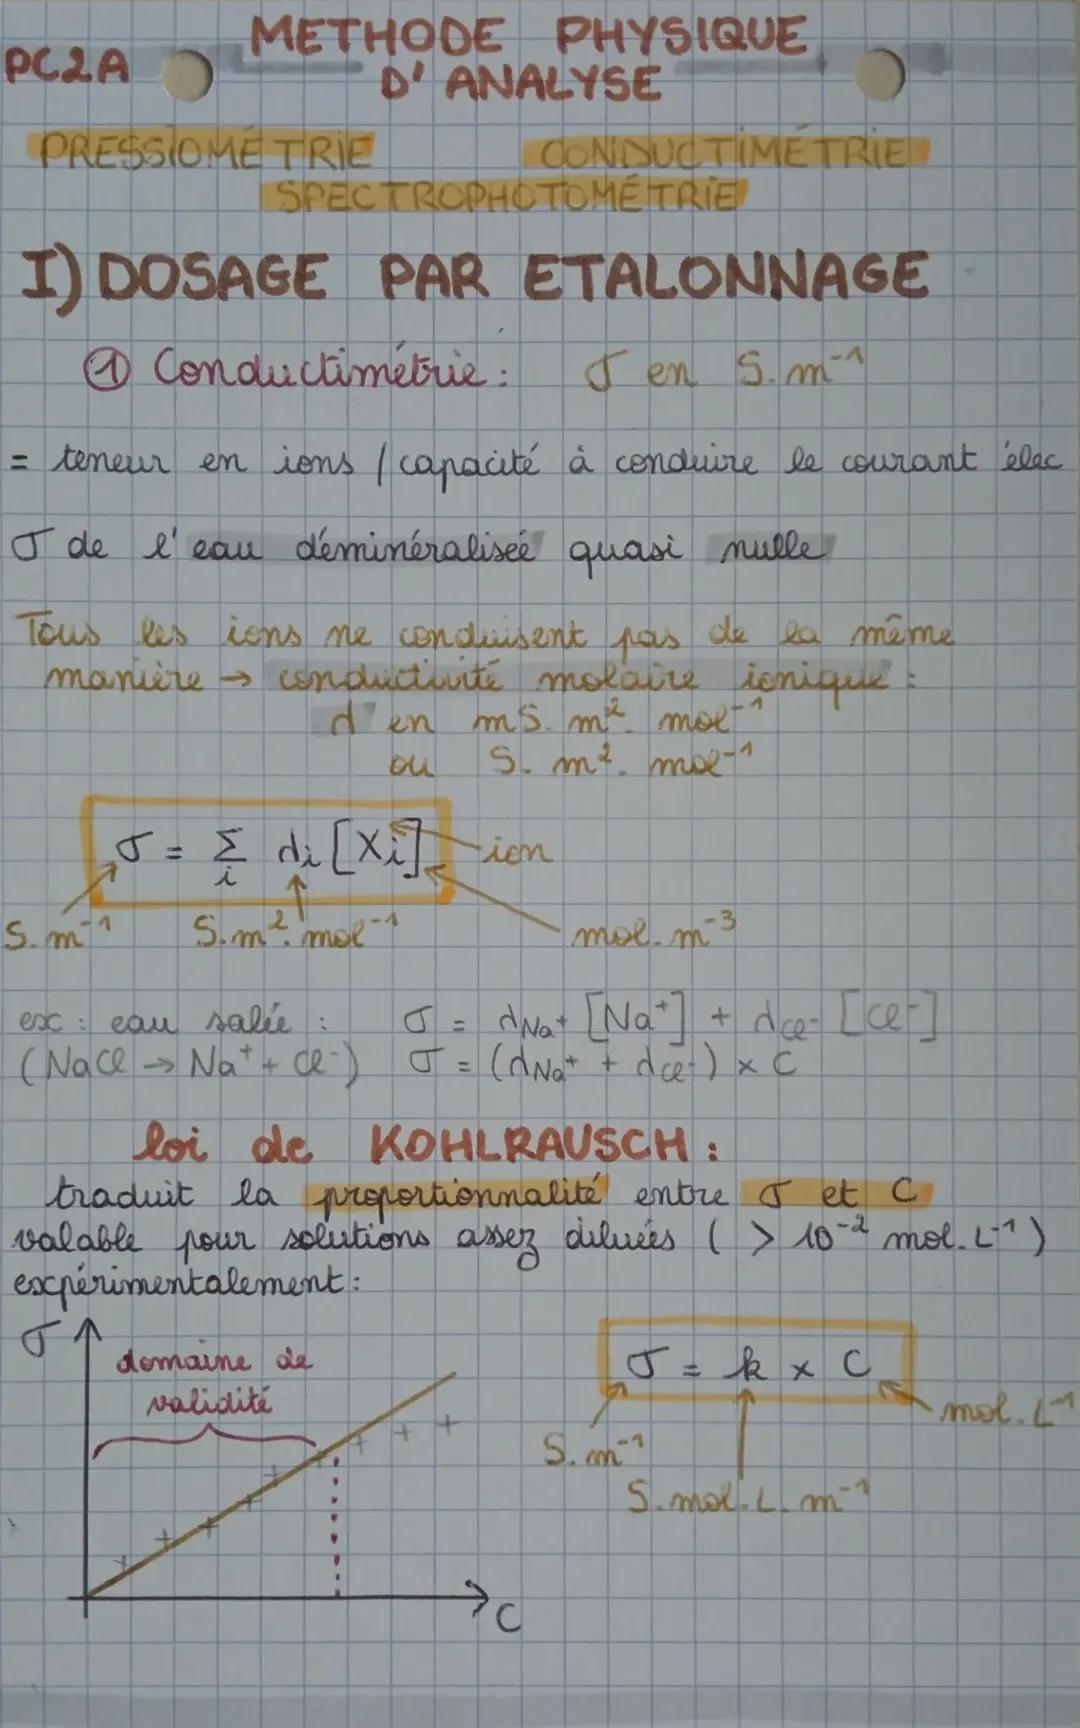 METHODE PHYSIQUE
PC2A
D'ANALYSE
PRESSIOMÉTRIE CONDUCTIMÉTRIE
SPECTROPHOTOMÉTRIE
I) DOSAGE PAR ETALONNAGE
① Conductimétrie : σ en S.m⁻¹
= teneur en ions / capacité à conduire le courant élec
σ de l'eau déminéralisée quasi nulle
Tous les ions ne conduisent pas de la même
manière → conductivité molaire ionique :
λ en mS.m².mol⁻¹
ou S.m².mol⁻¹
σ = Σ λi [Xi] ion
i
S.m⁻¹ S.m².mol⁻¹ mol.m⁻³
ex : eau salée : σ = λNa⁺ [Na⁺] + λCl⁻ [Cl⁻]
(NaCl → Na⁺ + Cl⁻) σ = (λNa⁺ + λCl⁻) × C
loi de KOHLRAUSCH :
traduit la proportionnalité entre σ et C
valable pour solutions assez diluées ( > 10⁻² mol.L⁻¹)
expérimentalement :
σ
domaine de
validité
σ = k × C
mol.L⁻¹
S.m⁻¹
S.mol.L.m⁻¹
C